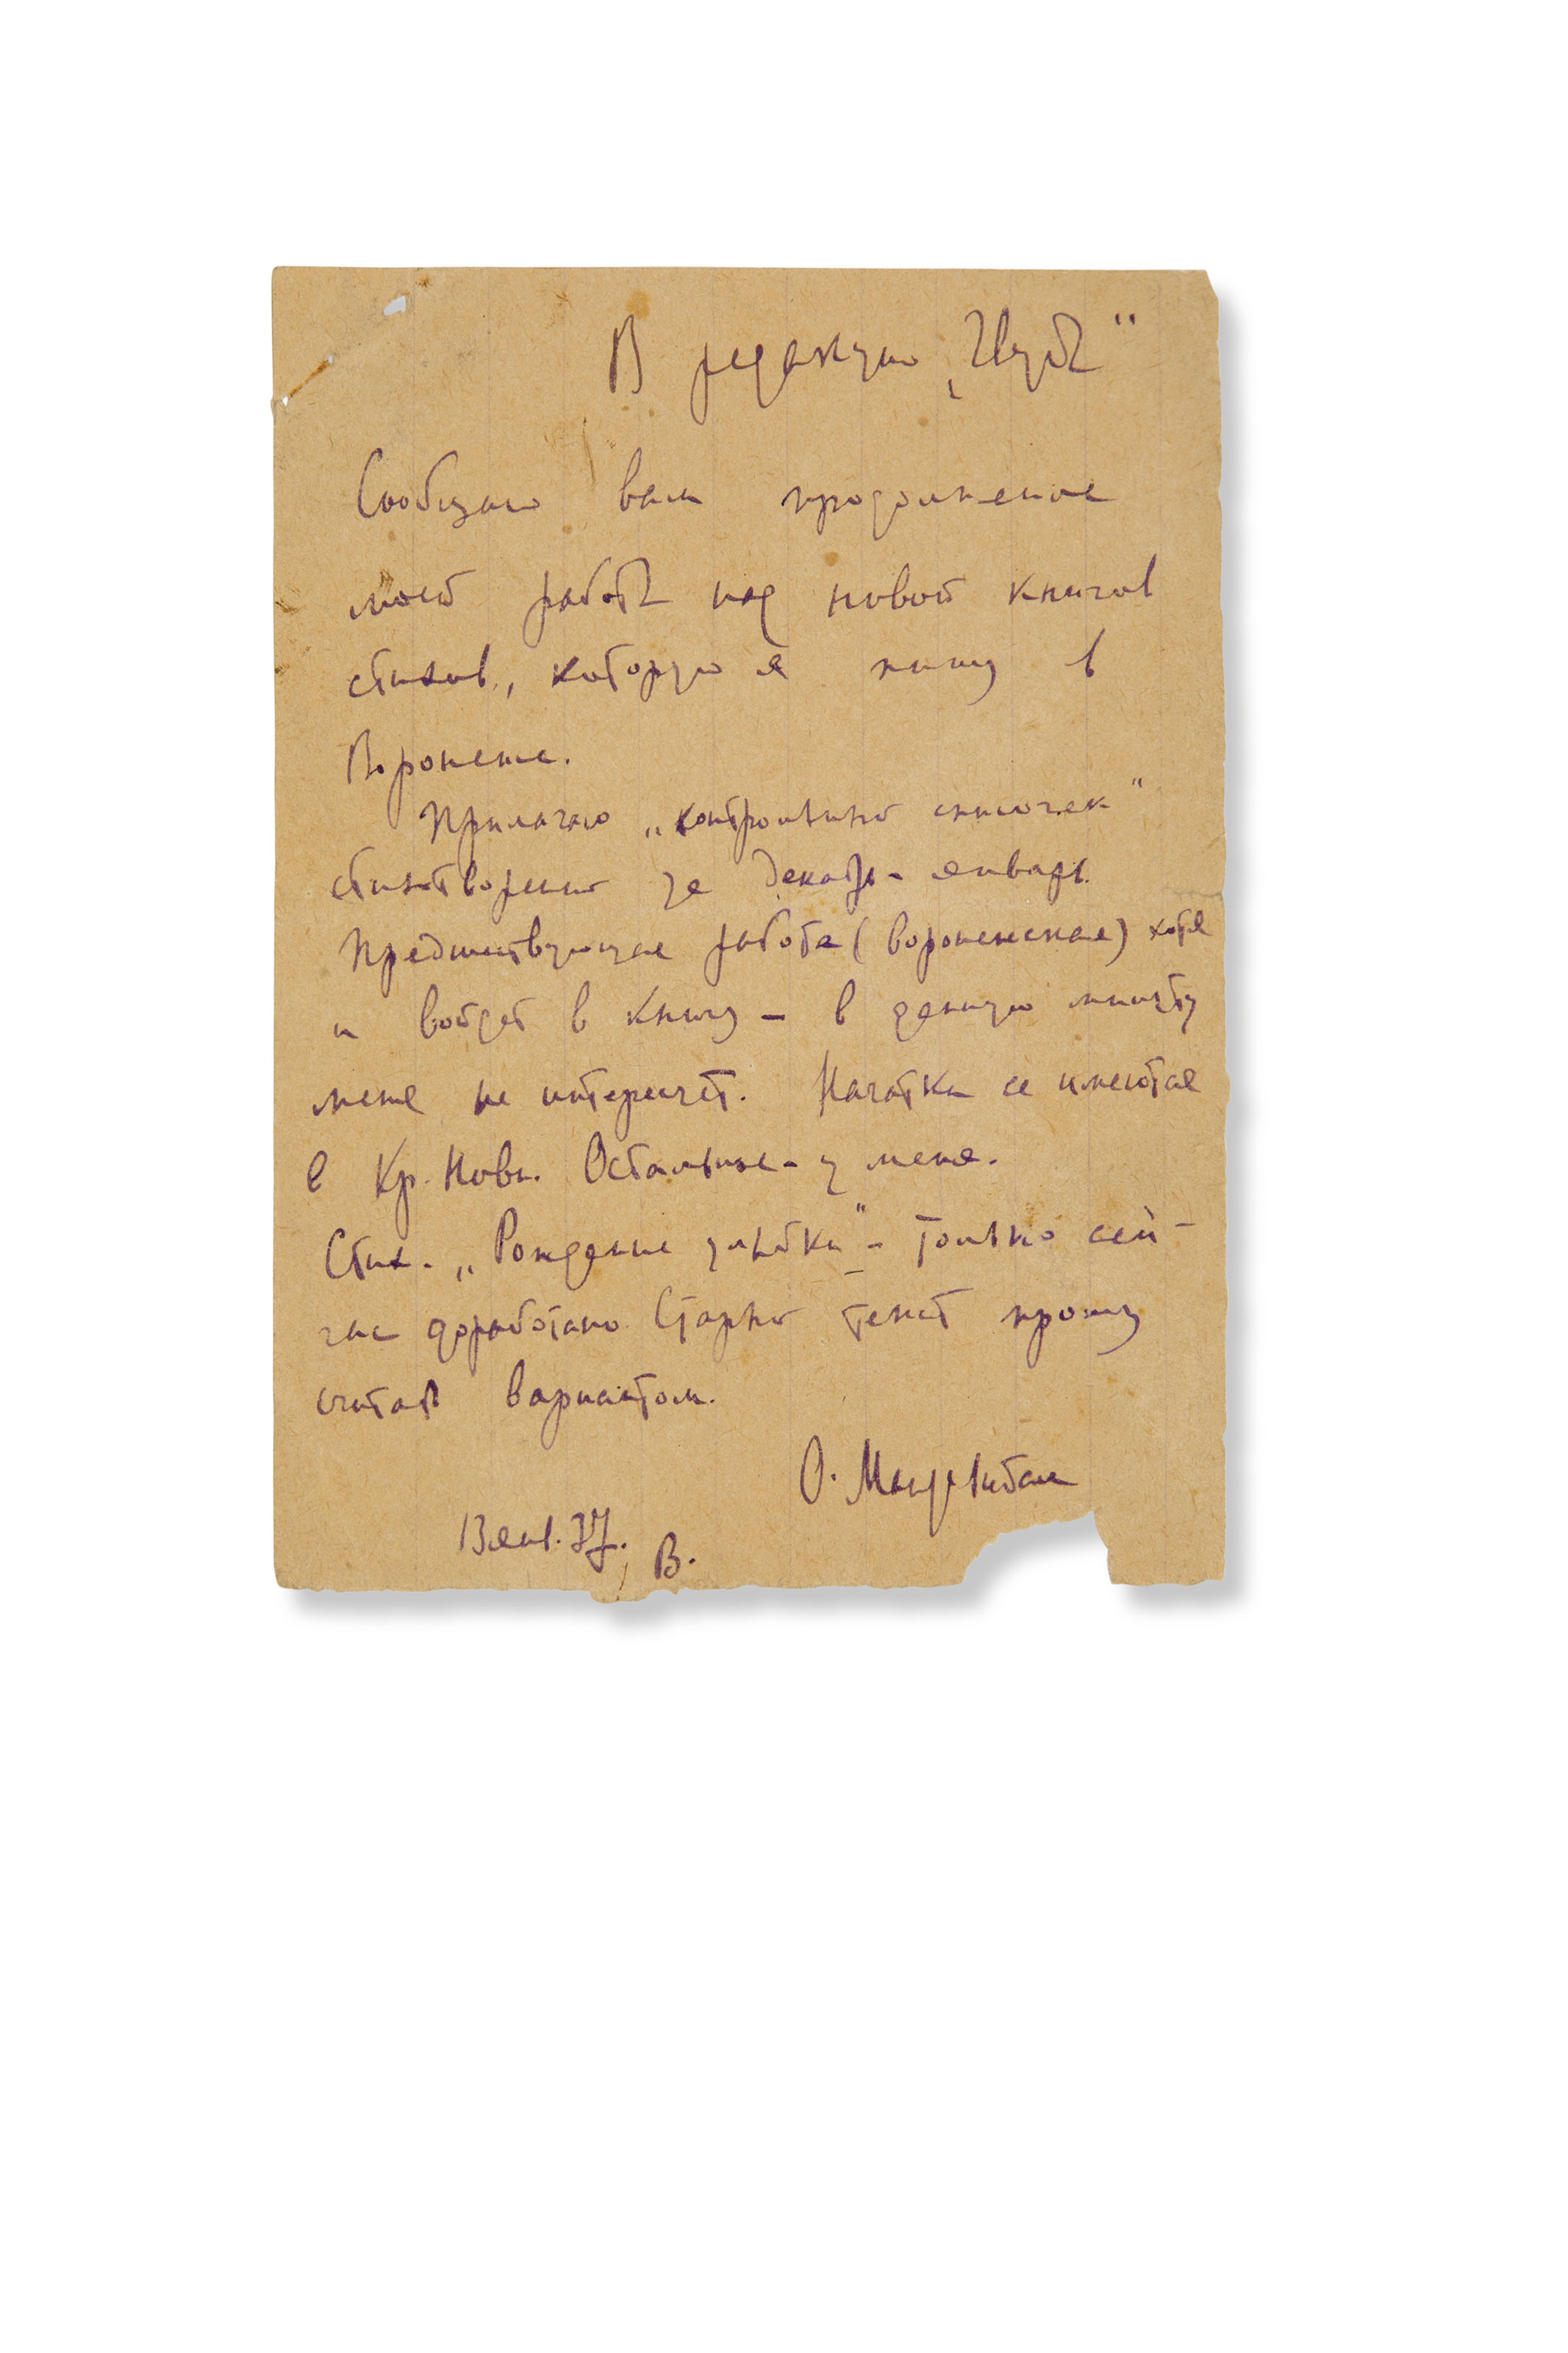 В редакцию „Звезды“
Сообщаю вам продолжение
моей работы над новой книгой
стихов, которую я пишу в
Воронеже.
Прилагаю „контрольный списочек“
стихотворений за декабрь - январь.
Предшествующая работа (воронежская) хотя
и войдет в книгу – в данную минуту
меня не интересует. Начатки ее имеются
в Кр. Нови. Остальное - у меня.
Стих. „Рождение улыбки“ - только сей-
час доработано. Старый текст прошу
считать вариантом.
О. Мандельштам
13 янв. 37. В.